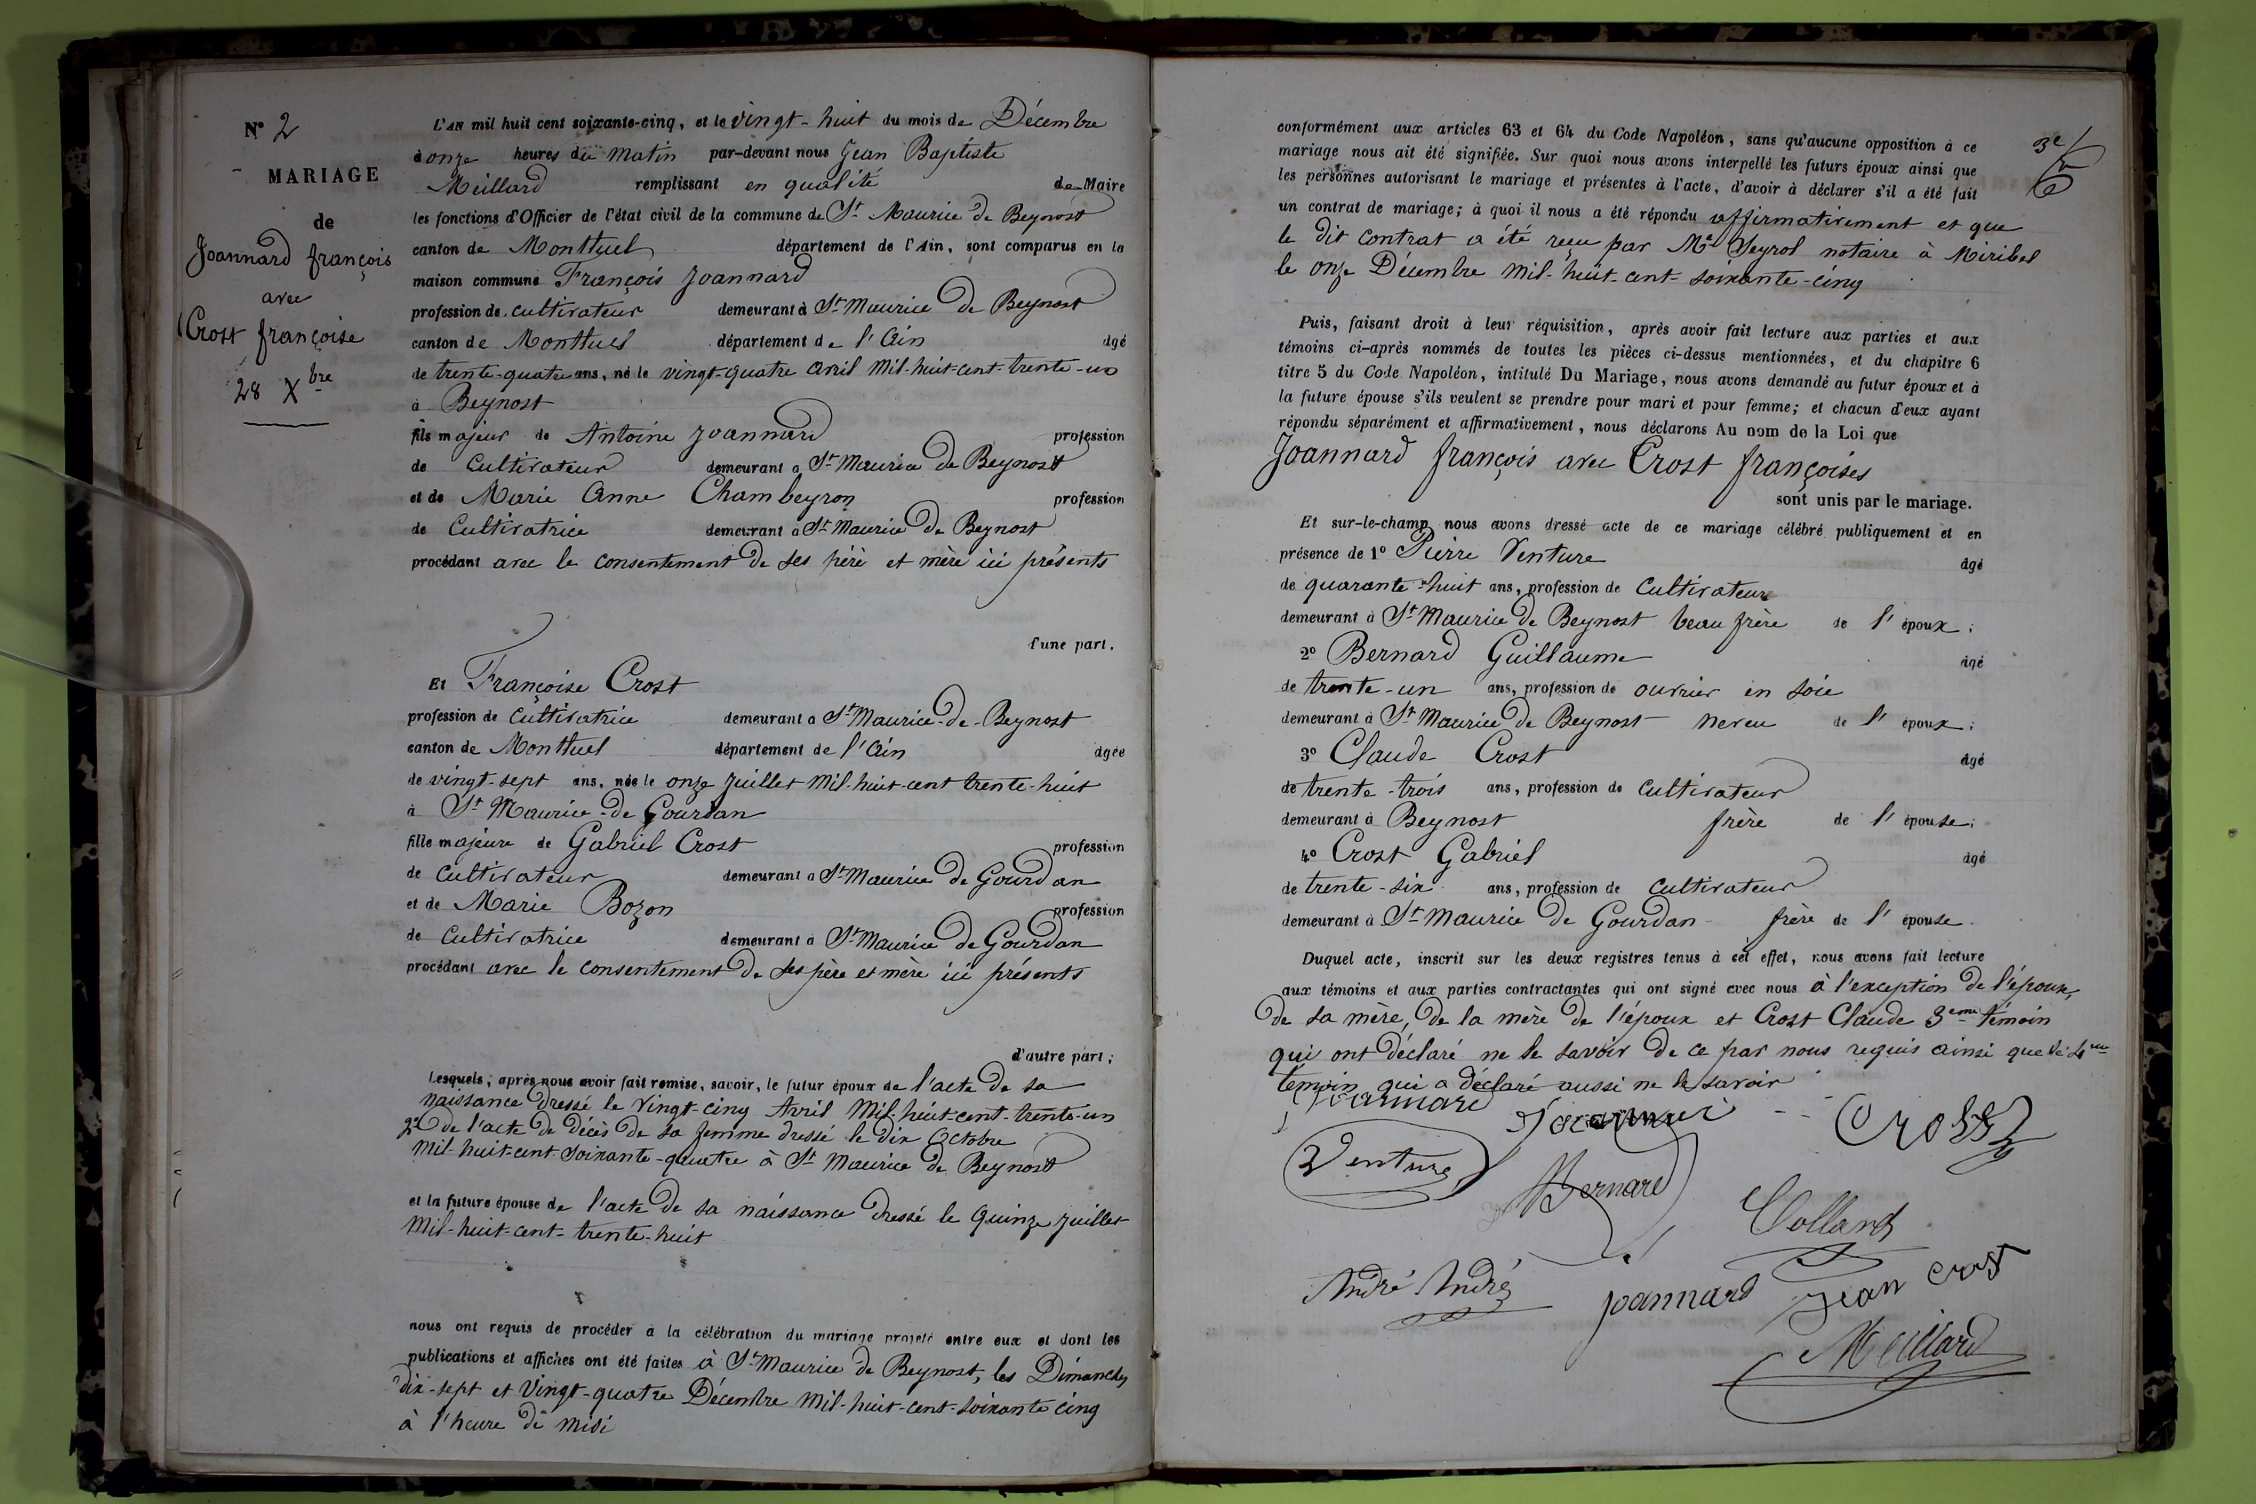 N° 2
MARIAGE
de
Joannard françois
avec
Crost françoise
28 Xbre
L'AN mil huit cent soixante-cinq, et le vingt-huit du mois de Décembre
à onze heures du matin par-devant nous Jean Baptiste
Meillard remplissant en qualité de Maire
les fonctions d'Officier de l'état civil de la commune de St Maurice de Beynost
canton de Montluel département de l'Ain, sont comparus en la
maison commune François Joannard
profession de cultivateur demeurant à St Maurice de Beynost
canton de Montluel département de l'Ain âgé
de trente-quatre ans, né le vingt-quatre avril mil-huit-cent-trente-un
à Beynost
fils majeur de Antoine Joannard profession
de cultivateur demeurant à St Maurice de Beynost
et de Marie Anne Chambeyron profession
de Cultivatrice demeurant à St Maurice de Beynost
procédant avec le consentement de ses père et mère ici présents
d'une part.
Et Françoise Crost
profession de cultivatrice demeurant à St Maurice-de-Beynost
canton de Montluel département de l'Ain âgée
de vingt-sept ans, née le onze juillet mil-huit-cent trente-huit
à St Maurice-de Gourdan
fille majeure de Gabriel Crost profession
de cultivateur demeurant à St Maurice de Gourdan
et de Marie Bozon profession
de cultivatrice demeurant à St Maurice de Gourdan
procédant avec le consentement de ses père et mère ici présents
d'autre part;
Lesquels, après nous avoir fait remise, savoir, le futur époux de l'acte de sa
naissance dressé le vingt-cinq Avril mil-huit-cent-trente-un
2° de l'acte de décès de sa femme dressé le dix Octobre
mil-huit-cent-soixante-quatre à St Maurice de Beynost
et la future épouse de l'acte de sa naissance dressé le quinze juillet
mil-huit-cent-trente-huit
nous ont requis de procéder à la célébration du mariage projeté entre eux et dont les
publications et affiches ont été faites à St Maurice de Beynost, les Dimanches
dix-sept et vingt-quatre Décembre mil-huit-cent-soixante cinq
à l'heure de midi
3e
conformément aux articles 63 et 64 du Code Napoléon, sans qu'aucune opposition à ce
mariage nous ait été signifiée. Sur quoi nous avons interpellé les futurs époux ainsi que
les personnes autorisant le mariage et présentes à l'acte, d'avoir à déclarer s'il a été fait
un contrat de mariage; à quoi il nous a été répondu affirmativement et que
le dit contrat a été reçu par Me Seyrol notaire à Miribel
le onze Décembre mil-huit-cent-soixante-cinq
Puis, faisant droit à leur réquisition, après avoir fait lecture aux parties et aux
témoins ci-après nommés de toutes les pièces ci-dessus mentionnées, et du chapitre 6
titre 5 du Code Napoléon, intitulé Du Mariage, nous avons demandé au futur époux et à
la future épouse s'ils veulent se prendre pour mari et pour femme; et chacun d'eux ayant
répondu séparément et affirmativement, nous déclarons Au nom de la Loi que
Joannard françois avec Crost françoises
sont unis par le mariage.
Et sur-le-champ nous avons dressé acte de ce mariage célébré publiquement et en
présence de 1° Pierre Venture âgé
de quarante-huit ans, profession de Cultivateur
demeurant à St Maurice de Beynost beau frère de l'époux;
2° Bernard Guillaume âgé
de trente-un ans, profession de ouvrier en soie
demeurant à St Maurice de Beynost neveu de l'époux;
3° Claude Crost âgé
de trente-trois ans, profession de cultivateur
demeurant à Beynost frère de l'épouse;
4° Crost Gabriel âgé
de trente-six ans, profession de cultivateur
demeurant à St Maurice de Gourdan frère de l'épouse.
Duquel acte, inscrit sur les deux registres tenus à cet effet, nous avons fait lecture
aux témoins et aux parties contractantes qui ont signé avec nous à l'exception de l'épouse,
de sa mère, de la mère de l'époux et Crost Claude 3eme témoin
qui ont déclaré ne le savoir de ce par nous requis ainsi que le 4me
témoin qui a déclaré aussi ne le savoir
Joannard
Crost
Venture
Bernard
Collard
André André
Joannard
Jean Crost
Meillard